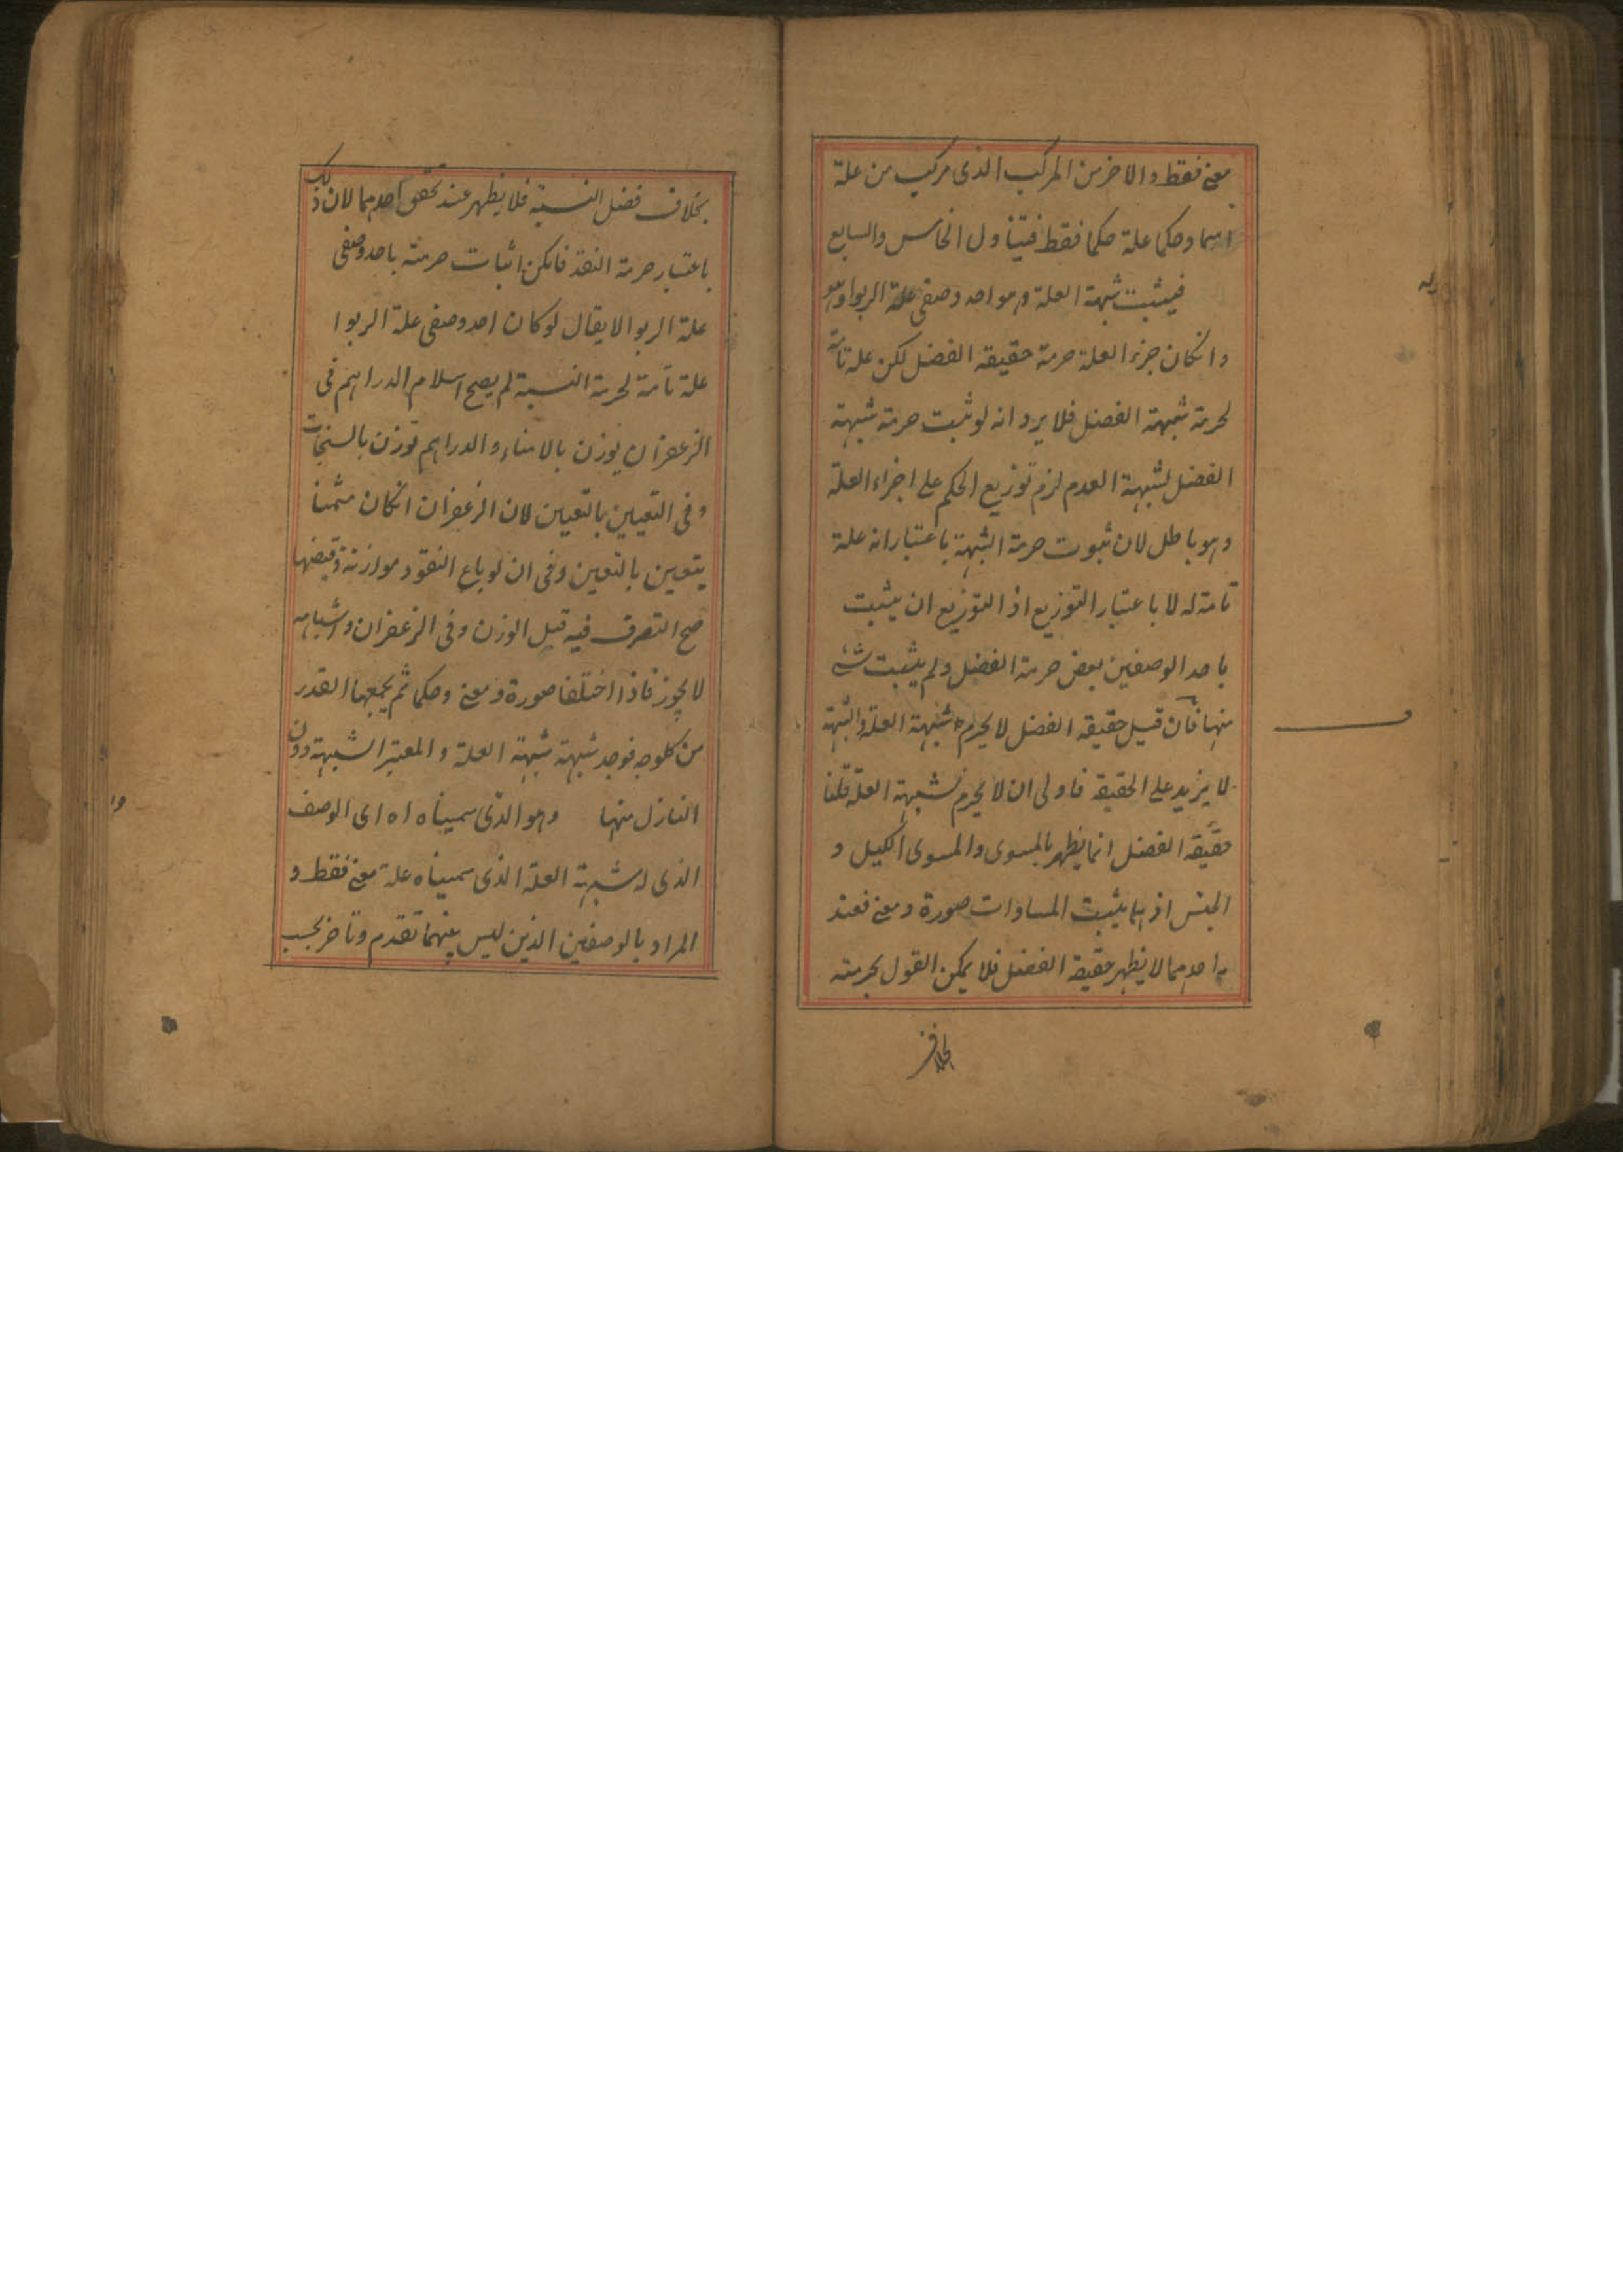 معنے فقط والاخر من المركب الذى مركب من علة
اسما وحكما علة حكما فقط فيتناول الخامس والسابع
فيثبت شبهة العلة وهو احد وصفى علة الربوا وهو
وانكان جزء العلة حرمة حقيقة الفضل لكن علة تامة
لحرمة شبهة الفضل فلا يرد انه لو ثبت حرمة شبهة
الفضل لشبهة العدم لزم توزيع الحكم على اجزاء العلة
وهو باطل لان ثبوت حرمة الشبهة باعتبار انه علة
تامة له لا باعتبار التوزيع اذ التوزيع ان يثبت
باحد الوصفين بعض حرمة الفضل ولم يثبت شئ
منها فان قيل حقيقة الفضل لا يحرم شبهة العلة والشبهة
لا يزيد على الحقيقة فاولى ان لا يحرم شبهة العلة قلنا
حقيقة الفضل انما يظهر بالمسوى والمسوى الكيل و
الجنس اذ بهما يثبت المساوات صورة ومعنے فعند
احدهما لا يظهر حقيقة الفضل فلا يمكن القول بحرمته
بخلاف
بخلاف فضل النسية فلا يظهر عند تحقق احدهما لان ذلك
باعتبار حرمة النقد فامكن اثبات حرمته باحد وصفى
علة الربوا لا يقال لو كان احد وصفى علة الربوا
علة تامة لحرمة النسية لم يصح اسلام الدراهم فى
الزعفران يوزن بالامناء والدراهم توزن بالسنجات
وفى التعيين بالتعيين لان الزعفران انكان مثمنا
يتعين بالتعين وفى ان لو باع النقود موازنة وقبضها
صح التصرف فيه قبل الوزن وفى الزعفران واشباهه
لا يجوز فاذا اختلفا صورة ومعنے وحكما ثم يجمعهما القدر
من كلوجه فوجد شبهة شبهة العلة والمعتبر الشبهة دون
النازل منها وهو الذى سميناه اه اى الوصف
الذى له شبهة العلة الذى سميناه علة معنے فقط و
المراد بالوصفين الذين ليس بينهما تقدم وتاخر بحسب